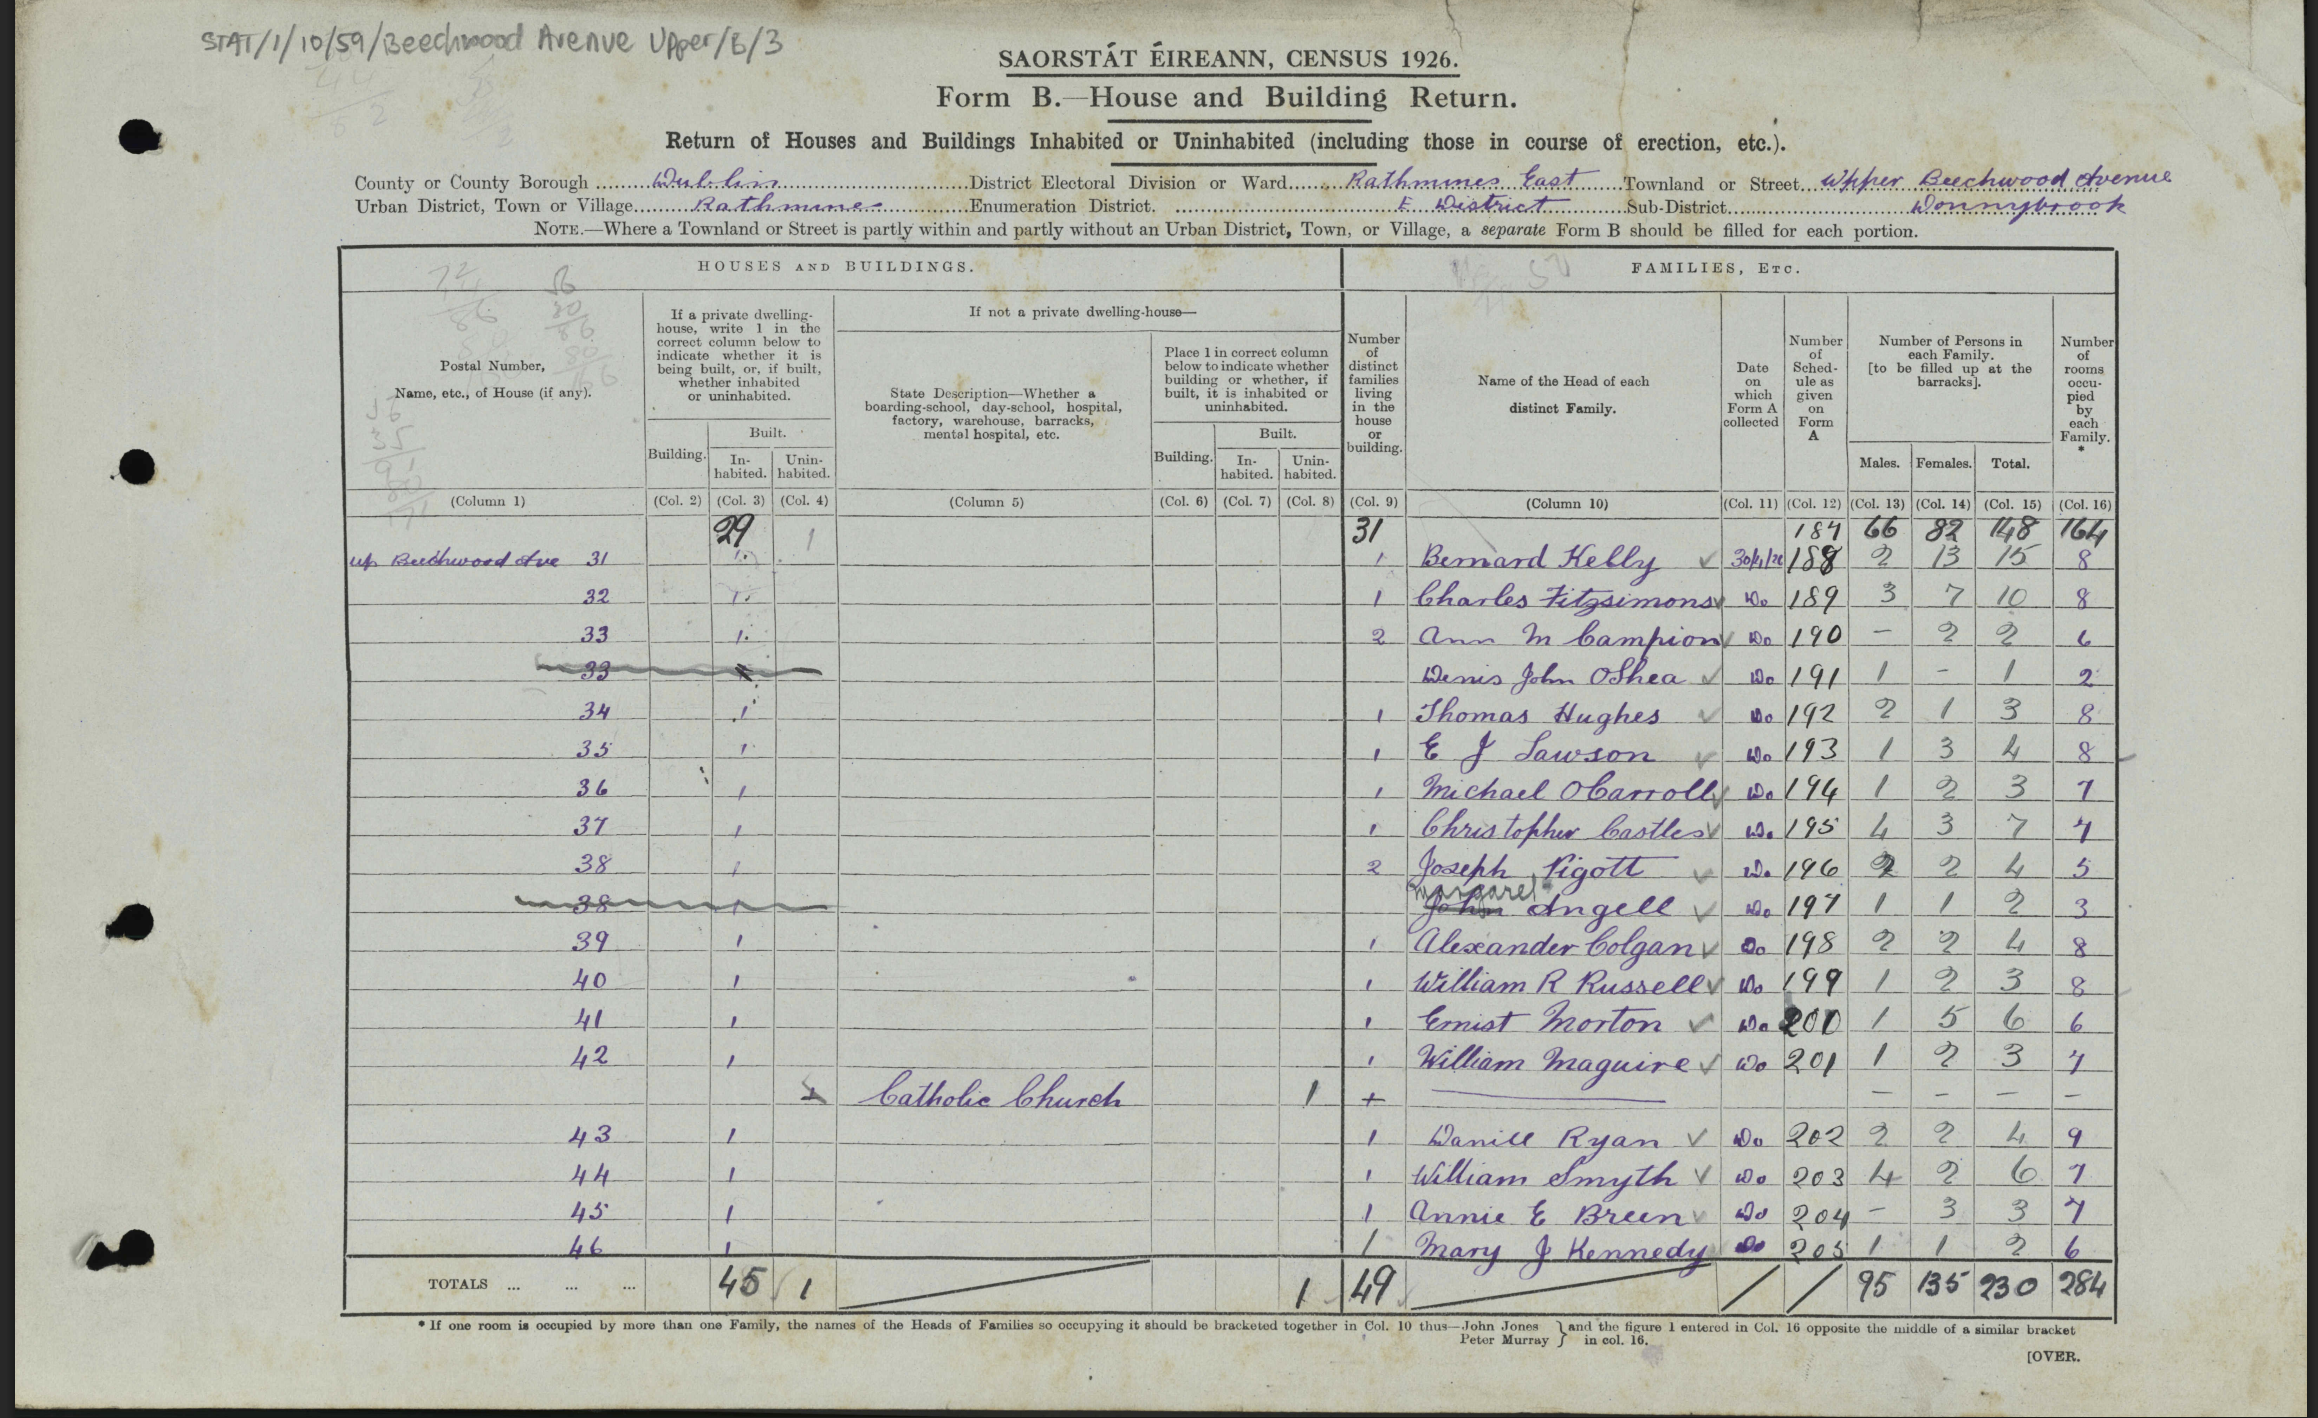 STAT/1/10/59/Beechwood Avenue Upper/B/3
SAORSTÁT ÉIREANN, CENSUS 1926.
Form B.—House and Building Return.
Return of Houses and Buildings Inhabited or Uninhabited (including those in course of erection, etc.).
County or County Borough Dublin District Electoral Division or Ward Rathmines East Townland or Street Upper Beechwood Avenue
Urban District, Town or Village Rathmines Enumeration District. E District Sub-District Donnybrook
NOTE.—Where a Townland or Street is partly within and partly without an Urban District, Town, or Village, a separate Form B should be filled for each portion.
HOUSES AND BUILDINGS. FAMILIES, ETC.
Postal Number, Name, etc., of House (if any).
If a private dwelling-house, write 1 in the correct column below to indicate whether it is being built, or, if built, whether inhabited or uninhabited.
Building. Built. In-habited. Unin-habited.
If not a private dwelling-house—
State Description—Whether a boarding-school, day-school, hospital, factory, warehouse, barracks, mental hospital, etc.
Place 1 in correct column below to indicate whether building or whether, if built, it is inhabited or uninhabited.
Building. Built. In-habited. Unin-habited.
Number of distinct families living in the house or building.
Name of the Head of each distinct Family.
Date on which Form A collected
Number of Sched-ule as given on Form A
Number of Persons in each Family. [to be filled up at the barracks].
Males. Females. Total.
Number of rooms occu-pied by each Family. *
(Column 1) (Col. 2) (Col. 3) (Col. 4) (Column 5) (Col. 6) (Col. 7) (Col. 8) (Col. 9) (Column 10) (Col. 11) (Col. 12) (Col. 13) (Col. 14) (Col. 15) (Col. 16)
29 1 31 187 66 82 148 164
Up Beechwood Ave 31 1 1 Bernard Kelly 30/4/26 188 2 13 15 8
32 1 1 Charles Fitzsimons Do 189 3 7 10 8
33 1 2 Ann M Campion Do 190 – 2 2 6
33 1 Denis John OShea Do 191 1 – 1 2
34 1 1 Thomas Hughes Do 192 2 1 3 8
35 1 1 E J Lawson Do 193 1 3 4 8
36 1 1 Michael OCarroll Do 194 1 2 3 7
37 1 1 Christopher Castles Do 195 4 3 7 7
38 1 2 Joseph Pigott Do 196 2 2 4 5
38 1 John Margaret Angell Do 197 1 1 2 3
39 1 1 Alexander Colgan Do 198 2 2 4 8
40 1 1 William R Russell Do 199 1 2 3 8
41 1 1 Ernist Morton Do 200 1 5 6 6
42 1 1 William Maguire Do 201 1 2 3 7
Catholic Church 1 + – – – –
43 1 1 Daniel Ryan Do 202 2 2 4 9
44 1 1 William Smyth Do 203 4 2 6 7
45 1 1 Annie E Breen Do 204 – 3 3 7
46 1 1 Mary J Kennedy Do 205 1 1 2 6
TOTALS ... ... ... 45 1 1 49 95 135 230 284
* If one room is occupied by more than one Family, the names of the Heads of Families so occupying it should be bracketed together in Col. 10 thus—John Jones Peter Murray } and the figure 1 entered in Col. 16 opposite the middle of a similar bracket in col. 16.
[OVER.